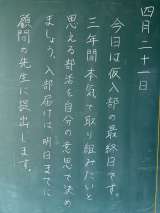 四月二十一日
今日は仮入部の最終日です。
三年間本気で取り組みたいと
思える部活を自分の意思で決め
ましょう。入部届けは明日までに
顧問の先生に提出します。